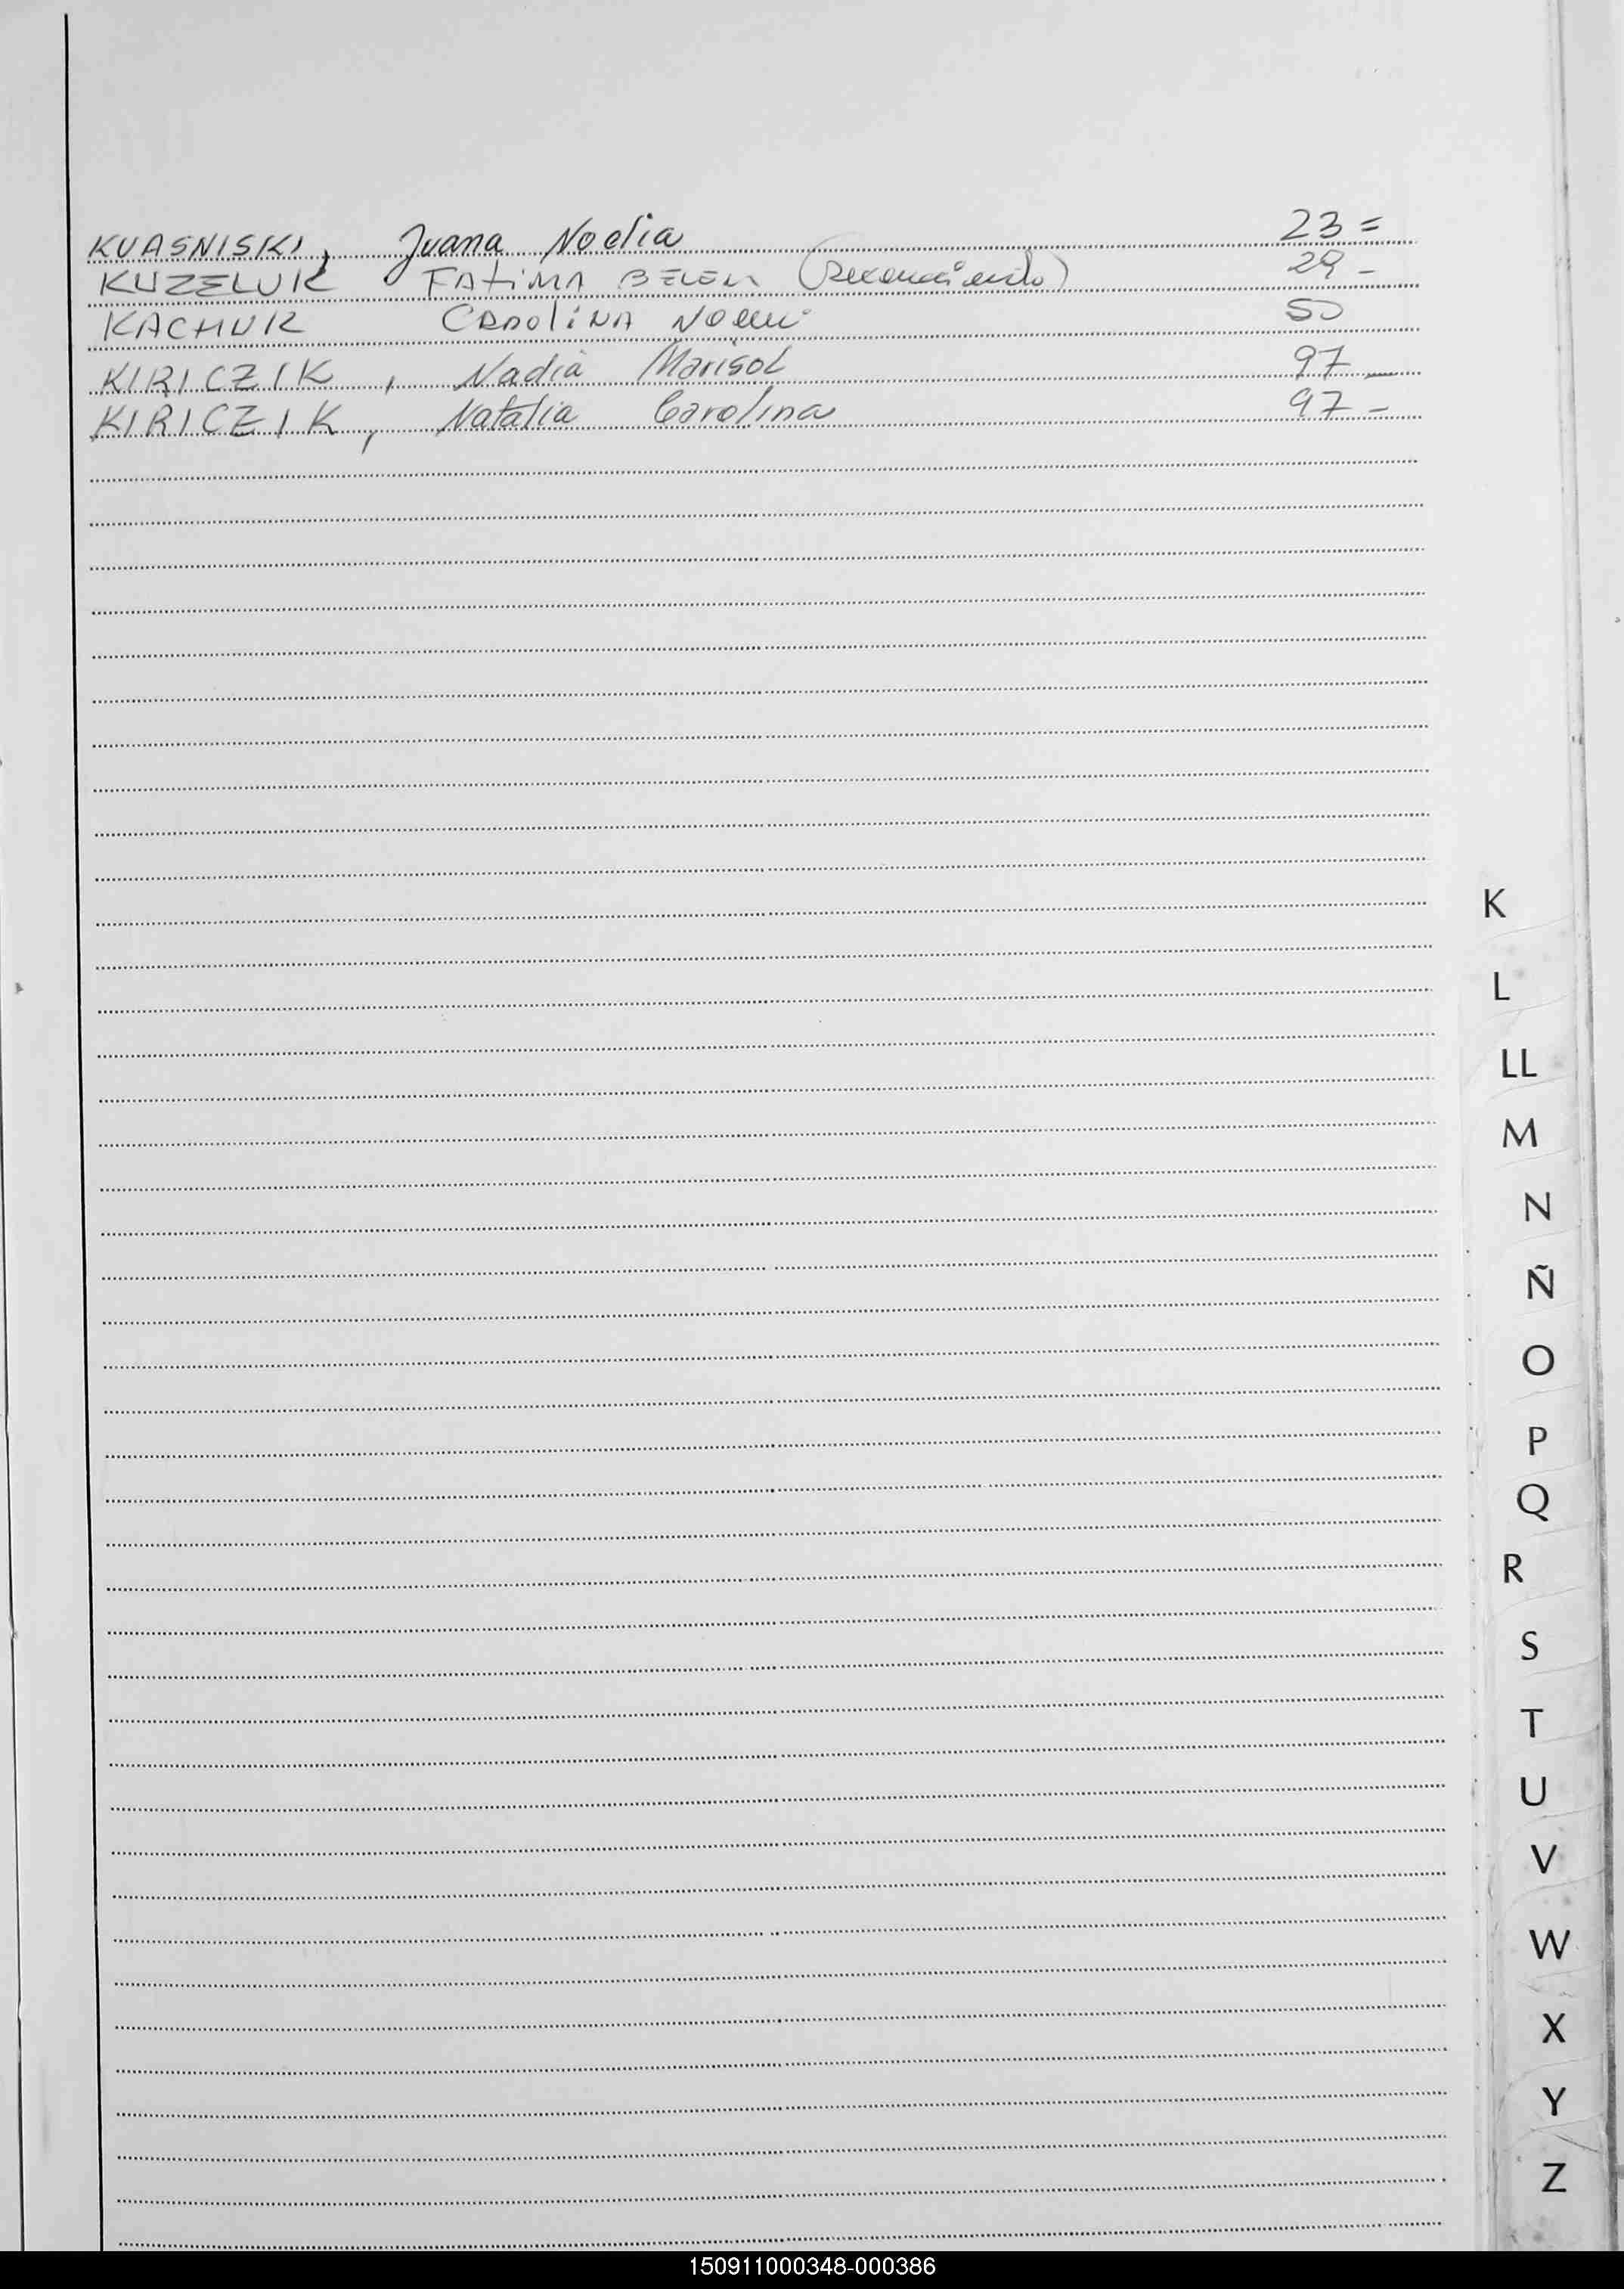 KUASNISKI, Juana Noelia 23=
KUZELUK FATIMA BELEN (Reconocimiento) 29-
KACHUR CAROLINA Noemi 50
KIRICZIK, Nadia Marisol 97-
KIRICZIK, Natalia Carolina 97-
K
L
LL
M
N
Ñ
O
P
Q
R
S
T
U
V
W
X
Y
Z
150911000348-000386